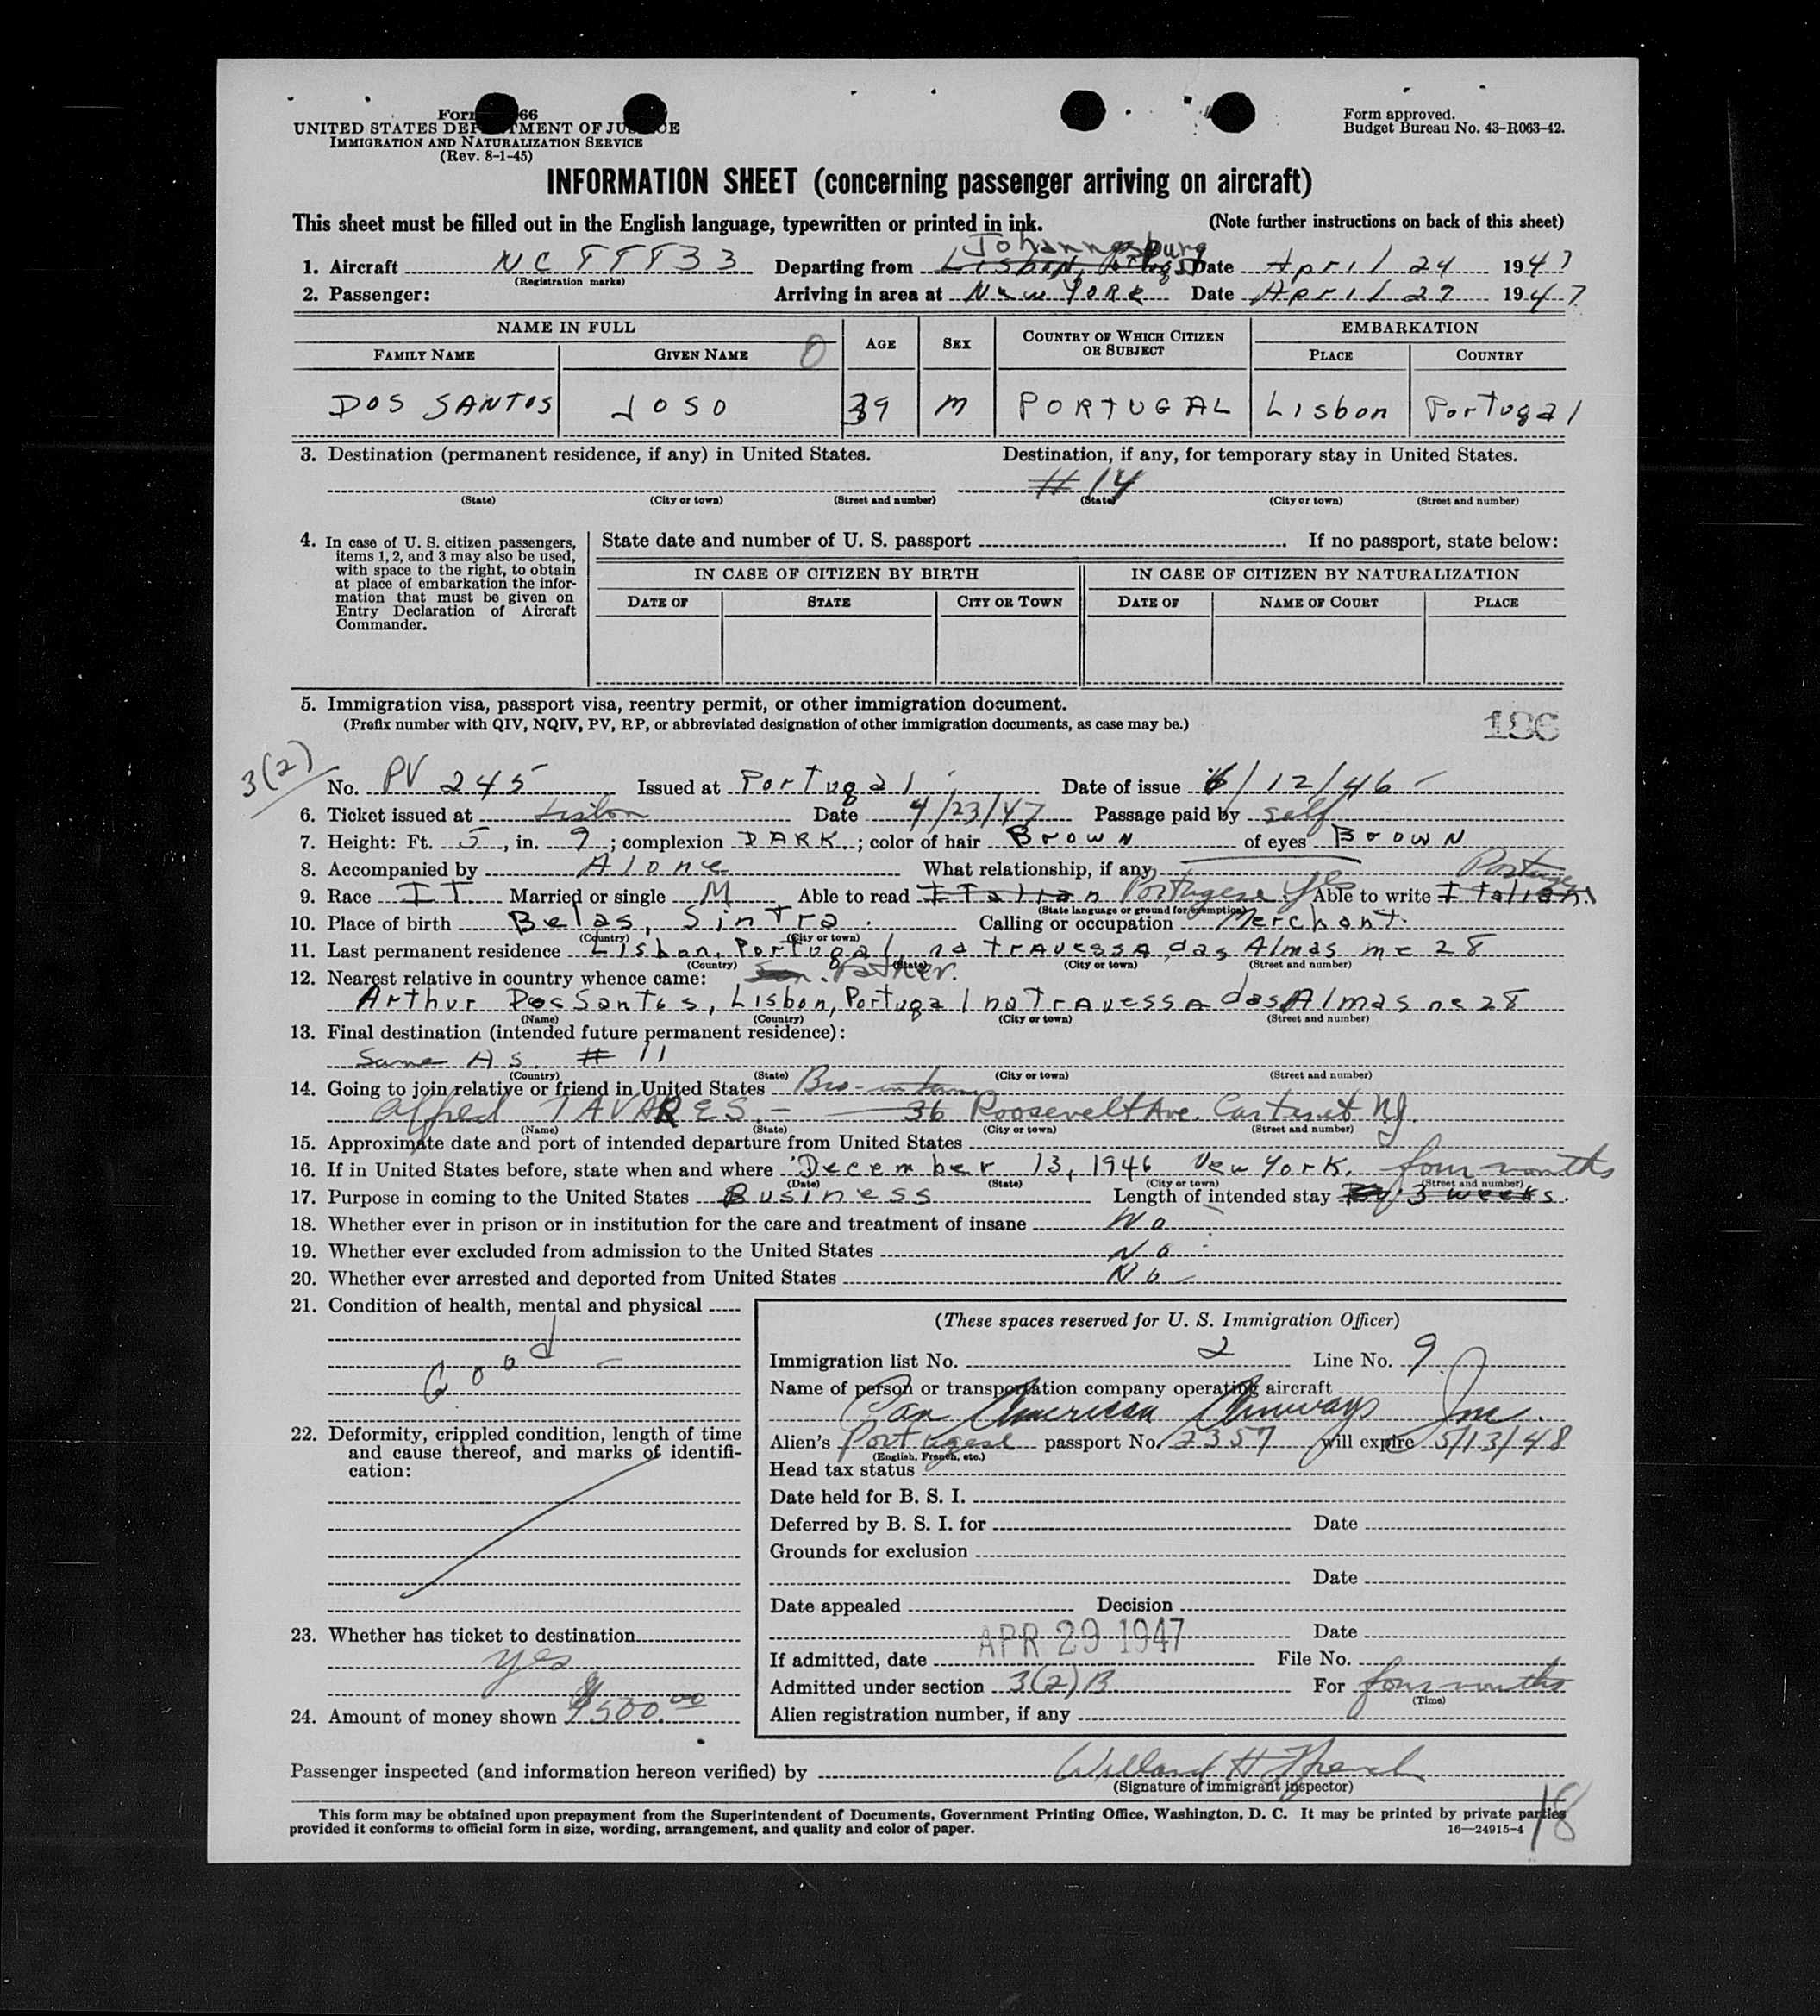 Form 66
UNITED STATES DEPARTMENT OF JUSTICE
IMMIGRATION AND NATURALIZATION SERVICE
(Rev. 8-1-45)
Form approved.
Budget Bureau No. 43-R063-42.
INFORMATION SHEET (concerning passenger arriving on aircraft)
This sheet must be filled out in the English language, typewritten or printed in ink. (Note further instructions on back of this sheet)
Johannesburg
1. Aircraft NC TTT33 Departing from Lisbon, Date April 24 1947
(Registration marks)
2. Passenger: Arriving in area at New YORK Date April 29 1947
NAME IN FULL AGE SEX COUNTRY OF WHICH CITIZEN OR SUBJECT EMBARKATION
FAMILY NAME GIVEN NAME O PLACE COUNTRY
DOS SANTOS JOSO 39 M PORTUGAL Lisbon Portugal
3. Destination (permanent residence, if any) in United States. Destination, if any, for temporary stay in United States.
# 14
(State) (City or town) (Street and number) (State) (City or town) (Street and number)
4. In case of U. S. citizen passengers, items 1, 2, and 3 may also be used, with space to the right, to obtain at place of embarkation the information that must be given on Entry Declaration of Aircraft Commander.
State date and number of U. S. passport If no passport, state below:
IN CASE OF CITIZEN BY BIRTH IN CASE OF CITIZEN BY NATURALIZATION
DATE OF STATE CITY OR TOWN DATE OF NAME OF COURT PLACE
5. Immigration visa, passport visa, reentry permit, or other immigration document.
(Prefix number with QIV, NQIV, PV, RP, or abbreviated designation of other immigration documents, as case may be.)
186
3(2)
No. PV 245 Issued at Portugal Date of issue 6/12/46
6. Ticket issued at Lisbon Date 4/23/47 Passage paid by self
7. Height: Ft. 5, in. 9; complexion DARK; color of hair Brown of eyes Brown
8. Accompanied by Alone What relationship, if any
9. Race IT Married or single M Able to read Italian Portugese yes Able to write Italian Portugese
(State language or ground for exemption)
10. Place of birth Belas, Sintra Calling or occupation Merchant
(Country) (City or town)
11. Last permanent residence Lisbon, Portugal na TRAVESSA das Almas nc 28
(Country) (State) (City or town) (Street and number)
12. Nearest relative in country whence came: Son. Father.
Arthur Dos Santos, Lisbon, Portugal na TRAVESSA das Almas nc 28
(Name) (Country) (City or town) (Street and number)
13. Final destination (intended future permanent residence):
Same As # 11
(Country) (State) (City or town) (Street and number)
14. Going to join relative or friend in United States Bro-in-law
Alfred TAVARES - 36 Roosevelt Ave. Carteret NJ.
(Name) (State) (City or town) (Street and number)
15. Approximate date and port of intended departure from United States
16. If in United States before, state when and where December 13, 1946 New York. four months
(Date) (State) (City or town) (Street and number)
17. Purpose in coming to the United States Business Length of intended stay 3 weeks.
18. Whether ever in prison or in institution for the care and treatment of insane No
19. Whether ever excluded from admission to the United States No
20. Whether ever arrested and deported from United States No
21. Condition of health, mental and physical
Good
22. Deformity, crippled condition, length of time and cause thereof, and marks of identification:
23. Whether has ticket to destination
yes
24. Amount of money shown $500.00
(These spaces reserved for U. S. Immigration Officer)
Immigration list No. 2 Line No. 9
Name of person or transportation company operating aircraft
Pan American Airways Inc.
Alien's Portugese passport No. 2357 will expire 5/13/48
(English, French, etc.)
Head tax status
Date held for B. S. I.
Deferred by B. S. I. for Date
Grounds for exclusion
Date
Date appealed Decision
Date
APR 29 1947
If admitted, date File No.
Admitted under section 3(2)B For four months
(Time)
Alien registration number, if any
Passenger inspected (and information hereon verified) by Willard H French
(Signature of immigrant inspector)
18
This form may be obtained upon prepayment from the Superintendent of Documents, Government Printing Office, Washington, D. C. It may be printed by private parties
provided it conforms to official form in size, wording, arrangement, and quality and color of paper. 16—24915-4